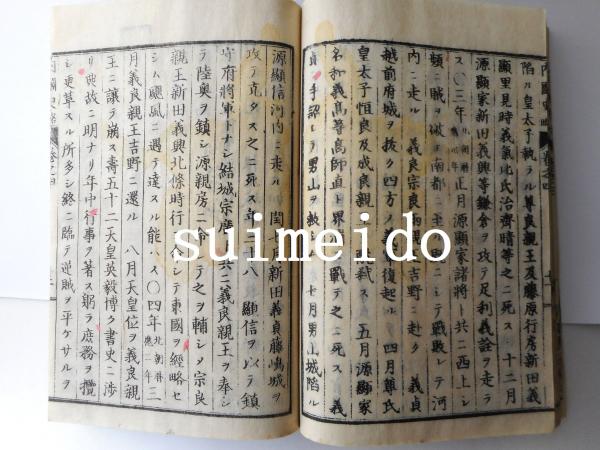 陷ル皇太子執ラル尊良親王及藤原行房新田義
顯里見時義氣比氏治齊晴等之ニ死ス 十二月
源顯家新田義興等鎌倉ヲ攻テ足利義詮ヲ走ラ
ス〇三年 正月源顯家諸將ト共ニ西上シ
頻ニ賊ヲ破 南都ニ ニシテ戰敗レテ河
内ニ走ル 義良宗良 成吉野ニ赴ク 義貞
越前府城ヲ拔ク四方ノ義 復起ル 四月尊氏
皇太子恒良及成良親 弑ス 五月源顯家
名和義高等高師直ト界 戰テ之ニ死ス 義
貞 手詔 ヲ男山ヲ救 十月男山城陷ル
源顯信河内ニ走ル 閏七月新田義貞藤島城ヲ
攻テ克タス之ニ死ス年 八 顯信ヲ以テ鎮
守府將軍トナシ結城宗廣 共ニ義良親王ヲ奉シ
テ陸奥ヲ鎮シ源親房ニ令 テ之ヲ輔シメ宗良
親王新田義興北條時行 シテ東國ヲ經略セ
シム颶風ニ遇テ達スル能ハス〇四年 北朝曆應二年 三
月義良親王吉野ニ還ル 八月天皇位ヲ義良親
王ニ讓テ崩ス壽五十二天皇英毅博ク書史ニ渉
リ典故ニ明ナリ年中行事ヲ著ス躬ラ庶務ヲ攬
シ更革スル所多シ終ニ臨テ逆賊ヲ平ケサルヲ
suimeido